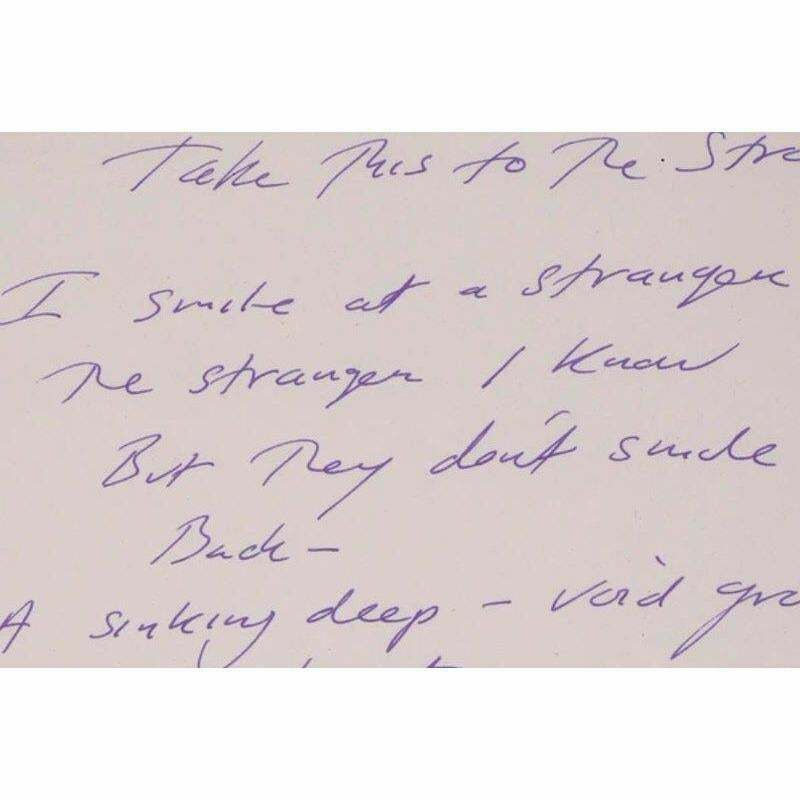 Take This to The Stra
I smile at a stranger
The stranger I know
But They don't smile
Back –
A sinking deep – void gro